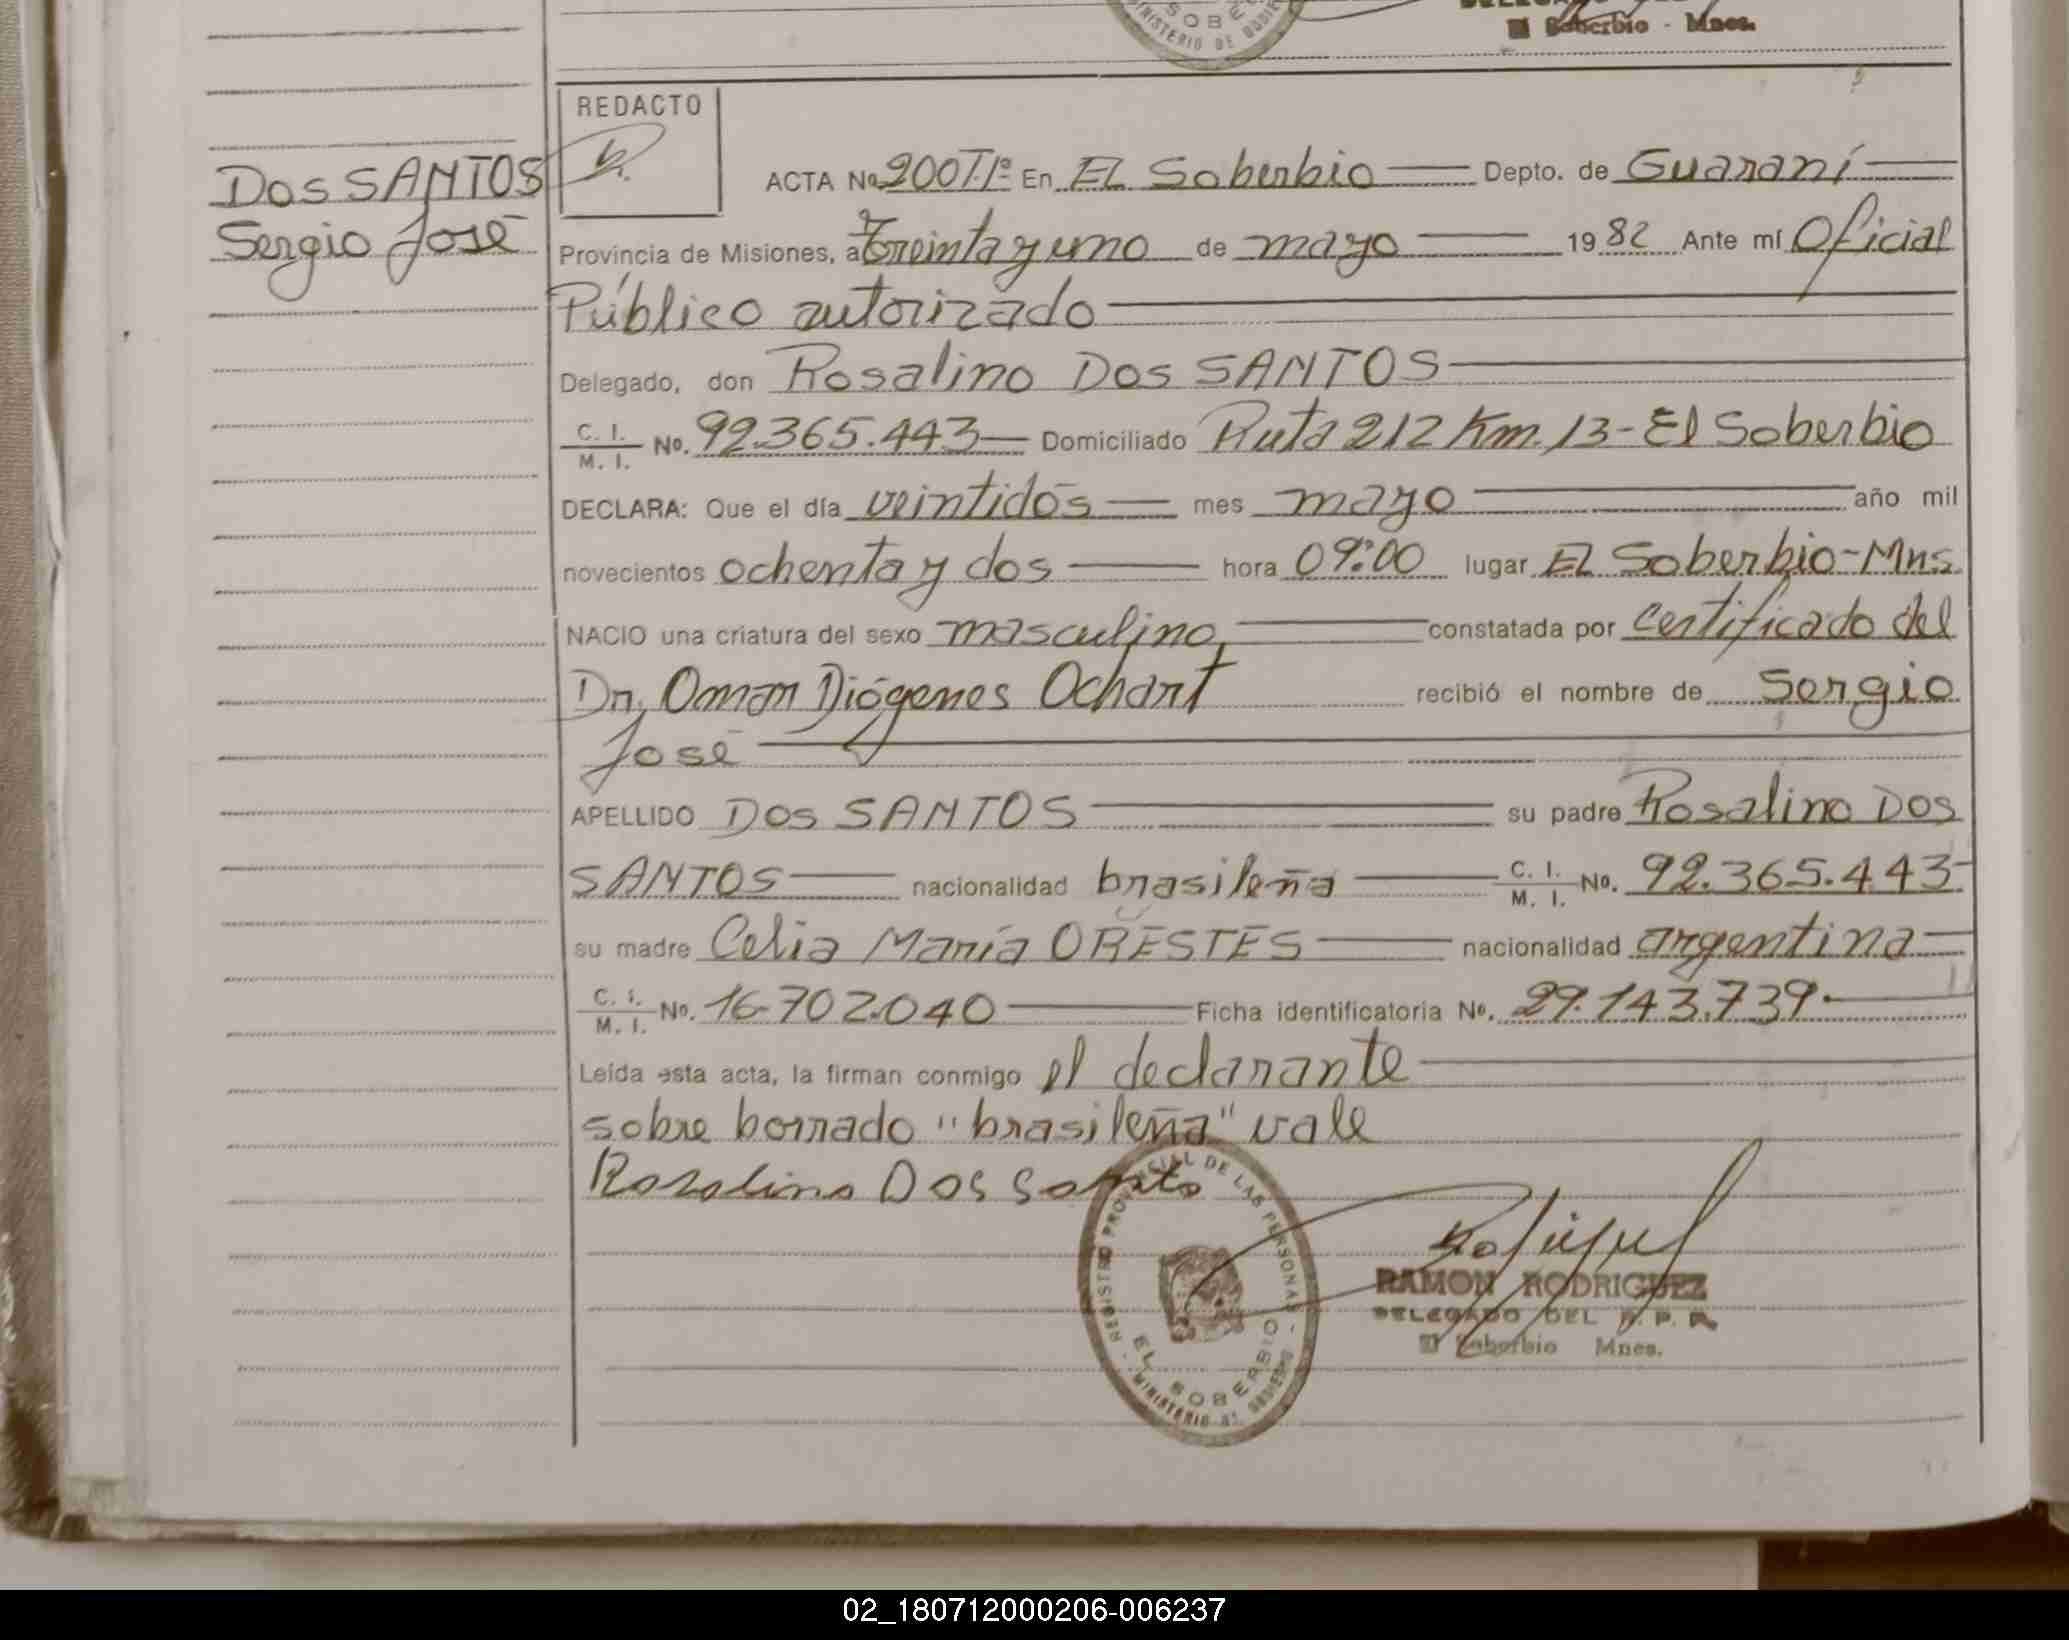 SOBE
MINISTERIO DE GOBIER
El Soberbio - Mnes.
REDACTO
Dos SANTOS
Sergio José
ACTA No 200T.1º En El Soberbio Depto. de Guaraní
Provincia de Misiones, a treinta y uno de mayo 1982 Ante mí Oficial
Público autorizado
Delegado, don Rosalino Dos SANTOS
C. I. / M. I. No. 92.365.443 Domiciliado Ruta 212 Km. 13 - El Soberbio
DECLARA: Que el día veintidós mes mayo año mil
novecientos ochenta y dos hora 09:00 lugar El Soberbio-Mns.
NACIO una criatura del sexo masculino, constatada por certificado del
Dr. Omar Diógenes Ochart recibió el nombre de Sergio
José
APELLIDO Dos SANTOS su padre Rosalino Dos
SANTOS nacionalidad brasileña C. I. / M. I. No. 92.365.443-
su madre Celia María ORESTES nacionalidad argentina
C. I. / M. I. No. 16.702.040 Ficha identificatoria No. 29.143.739.
Leída esta acta, la firman conmigo el declarante
sobre borrado "brasileña" vale
Rosalino Dos Santo
REGISTRO PROVINCIAL DE LAS PERSONAS -
EL SOBERBIO
MINISTERIO DE GOBIERNO
RAMON RODRIGUEZ
DELEGADO DEL R. P. P.
El Soberbio Mnes.
02_180712000206-006237